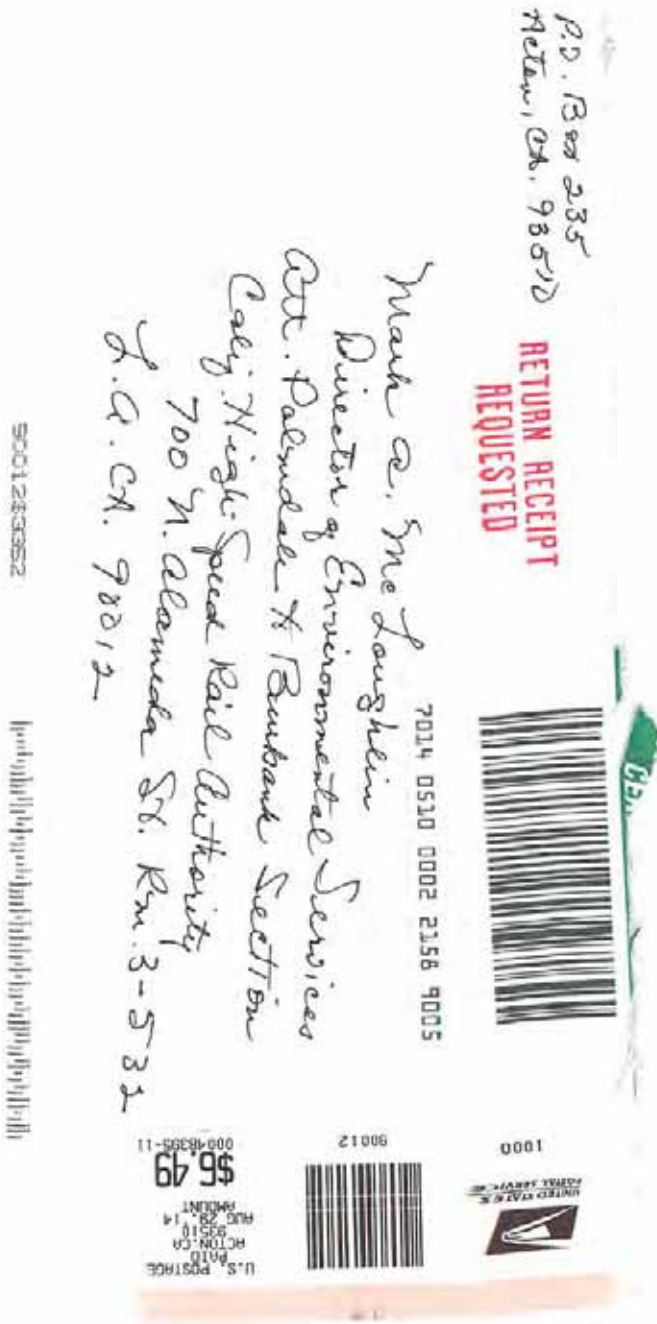 P.O. Box 235
Acton, CA. 93510
RETURN RECEIPT
REQUESTED
7014 0510 0002 2158 9005
Mark A. McLoughlin
Director of Environmental Services
Att. Palmdale to Burbank Section
Calif. High-Speed Rail Authority
700 N. Alameda St. Rm. 3-532
L.A. CA. 90012
UNITED STATES
POSTAL SERVICE
1000
90012
U.S. POSTAGE
PAID
ACTON, CA
93510
AUG 29, 14
AMOUNT
$6.49
00048395-11